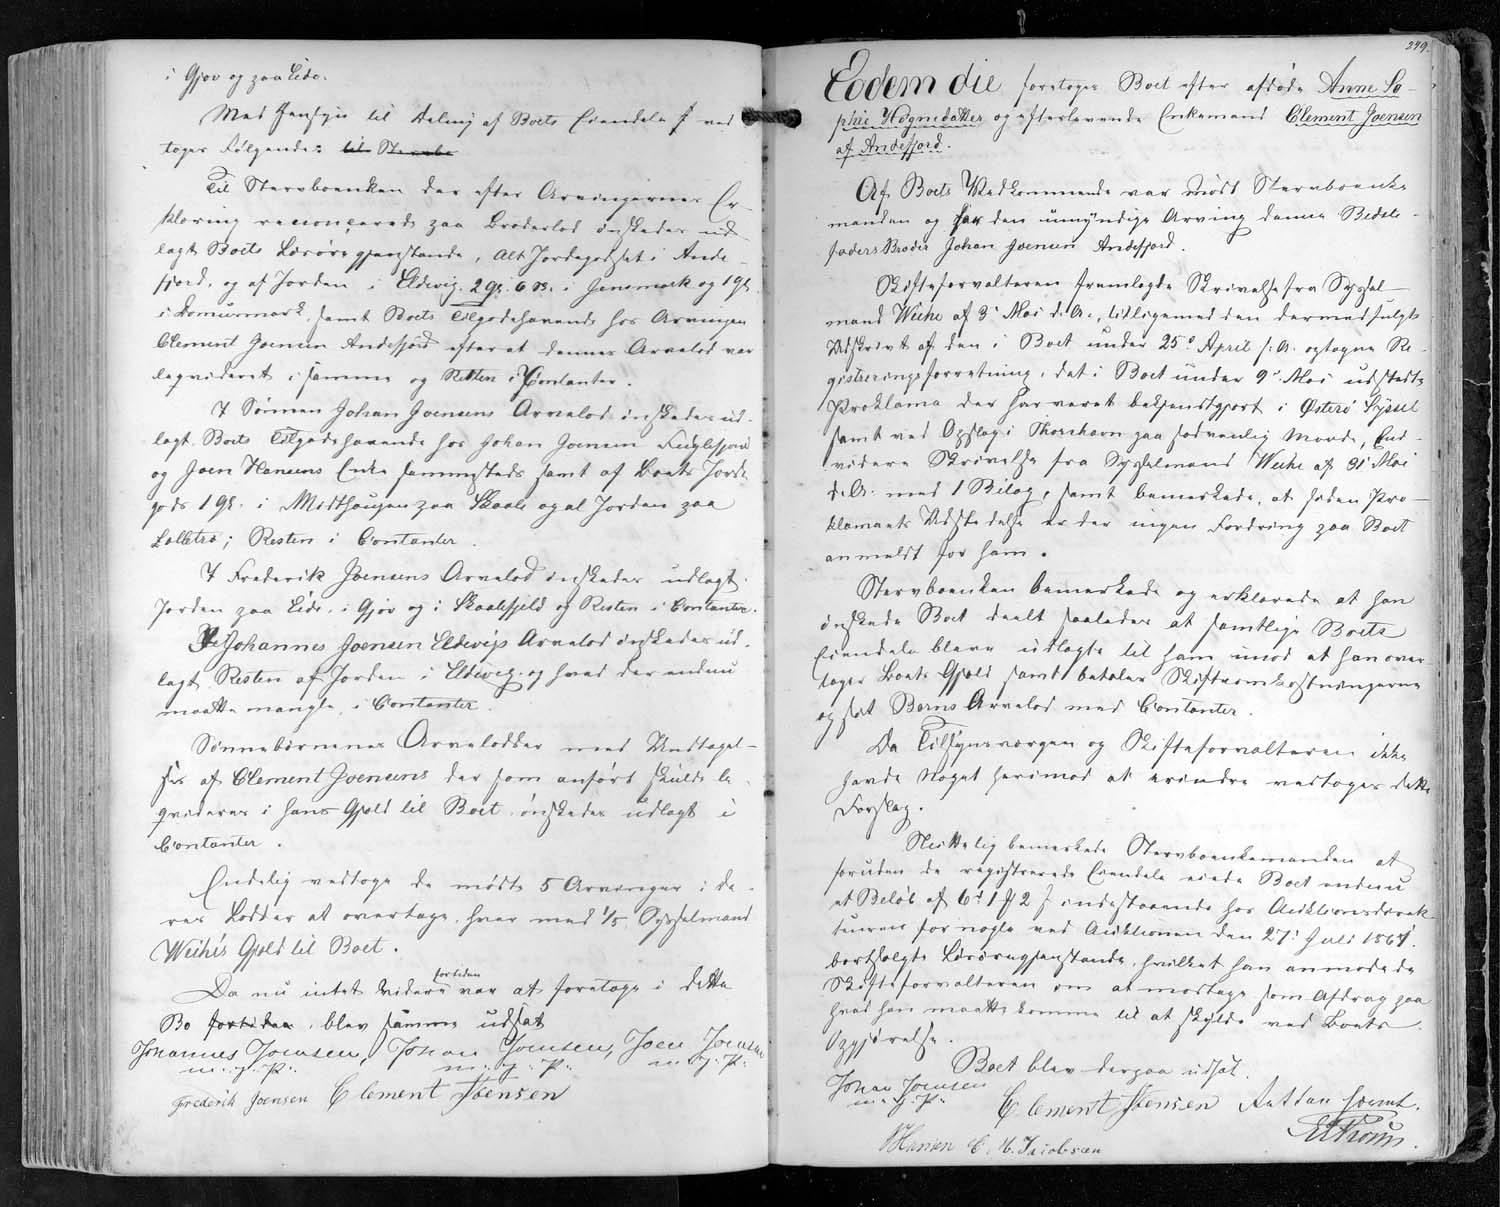 i Gjov og paa Eide.
Med Hensyn til Deling af Boets Eiendele ved
toges Følgende: til Stervbo
Til Stervboenken der efter Arvingernes Er
klæring renoncerede paa Broderlod ønskedes ud-
lagt Boets Løsøregjenstande, alt Jordegodset i Ande-
fjord, og af Jorden i Eldevig 2 gr. 6 i Jensmark og 1 gr.
samt Boets Tilgodehavende hos Arvingen
Clement Joensen Andefjord efterat dennes Arvelod var
leqvideret i samme og Resten i Contanter.
I Sønnen Johan Joensens Arvelod ønskedes ud-
lagt Boets Tilgodehavende hos Johan Joensen Fuglefjord
og Joen Hansens Enke sammesteds samt af Boets Jorde
gods 1 gr. i Midthaugen paa Skaale og al Jorden paa
Resten i Contanter.
I Frederik Joensens Arvelod ønskedes udlagt
Jorden paa Eide, i Gjov og i Skaalefjeld og Resten i Contanter.
I Johannes Joensen Eldevigs Arvelod ønskedes ud-
lagt Resten af Jorden i Eldevig og hvad der endnu
maatte mangle, i Contanter.
Sønnebørnenes Arvelodder med Undtagel-
se af Clement Joensens der som anført skulde le-
qvideres i hans Gjæld til Boet ønskedes udlagt i
Contanter.
Endelig vedtoge de mødte 5 Arvinger i de-
res Lodder at overtage hver med 1/5 Sysselmand
Weihes Gjæld til Boet.
Da nu intet videre fortiden var at foretage i dette
Bo fortiden, blev samme udsat
Johannes Joensen, Johan Joensen, Joen Joensen
m. f. P. m. f. P. m. f. P.
Frederik Joensen Clement Joensen
249.
Eodem die foretoges Boet efter afdøde Anne So-
phie Høgnedatter og efterlevende Enkemand Clement Joensen
af Andefjord.
Af Boets Vedkommende var mødt Stervboenke
manden og for den umyndige Arving dennes Bedste-
faders Broder Johan Joensen Andefjord.
Skifteforvalteren fremlagde Skrivelse fra Syssel-
mand Weihe af 3 Mai d. A., tilligemed den dermed fulgte
Udskrivt af den i Boet under 25de April s. A. optagne Re-
gistreringsforretning, det i Boet under 9 Mai udstedte
Proklama der har været bekjendtgjort i Østerø Syssel
samt ved Opslag i Thorshavn paa sædvanlig Maade, End-
videre Skrivelse fra Sysselmand Weihe af 31 Mai
d. A. med 1 Bilag, samt bemærkede, at siden Pro-
klamaets Udstedelse er der ingen Fordring paa Boet
anmeldt for ham.
Stervboenken bemærkede og erklærede at han
ønskede Boet deelt saaledes at samtlige Boets
Eiendele bleve udlagte til ham imod at han over-
tager Boets Gjæld samt betaler Skifteomkostningerne
og sit Barns Arvelod med Contanter.
Da Tilsynsværgen og Skifteforvalteren ikke
havde Noget herimod at erindre vedtoges dette
Forslag.
Sluttelig bemærkede Stervboenkemanden at
foruden de registrerede Eiendele eiede Boet endnu
et Beløb af 6 1 2 indestaaende hos Auktionsdirek-
teuren for nogle ved Auktionen den 27 Juli
bortsolgte Løsøregjenstande, hvilket han anmodede
Skifteforvalteren om at modtage som Afdrag paa
hvad han maatte komme til at skylde ved Boets
Opgjørelse.
Boet blev derpaa udsat.
Johan Joensen
m. f. P. Clement Joensen
Hansen C. M. Jacobsen